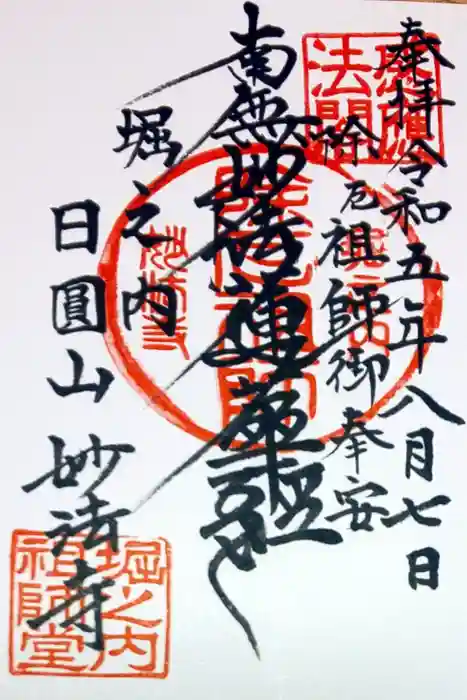 奉拝 令和五年八月七日
除厄祖師御奉安
南無妙法蓮華経
堀之内
日圓山 妙法寺
堀之内
祖師堂